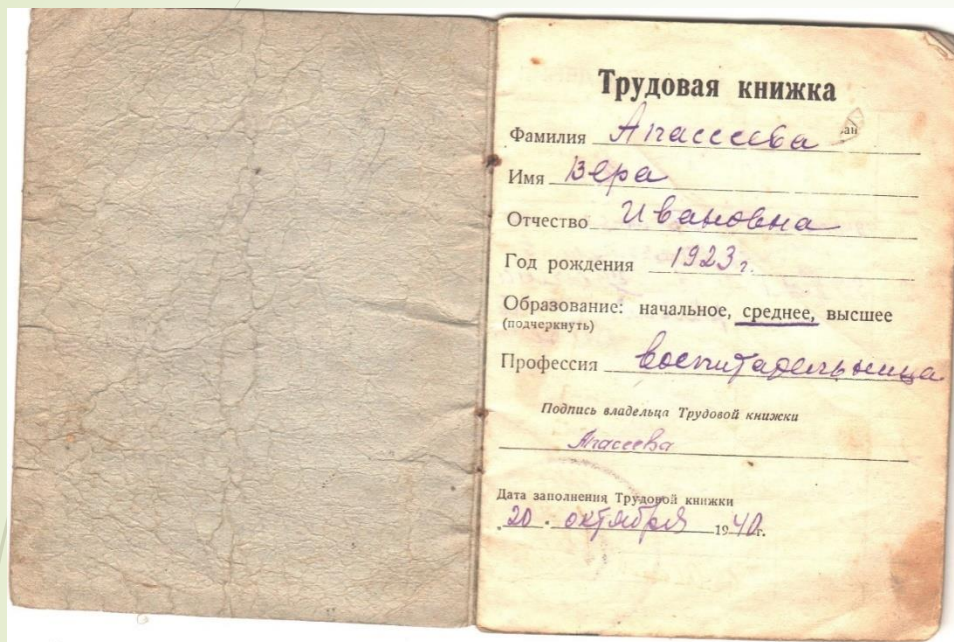 Трудовая книжка
Фамилия Агасеева
Имя Вера
Отчество Ивановна
Год рождения 1923 г.
Образование: начальное, среднее, высшее
(подчеркнуть)
Профессия воспитательница
Подпись владельца Трудовой книжки
Агасеева
Дата заполнения Трудовой книжки
20 · октября 1940г.